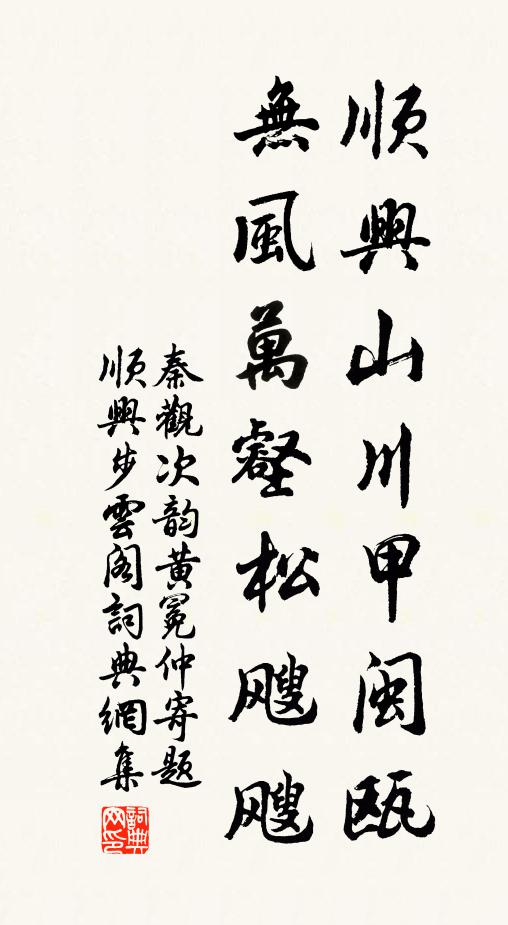 順興山川甲閩甌
無風萬壑松颼颼
秦觀次韵黃冕仲寄題
順興步雲閣詞典網集
詞典
网印